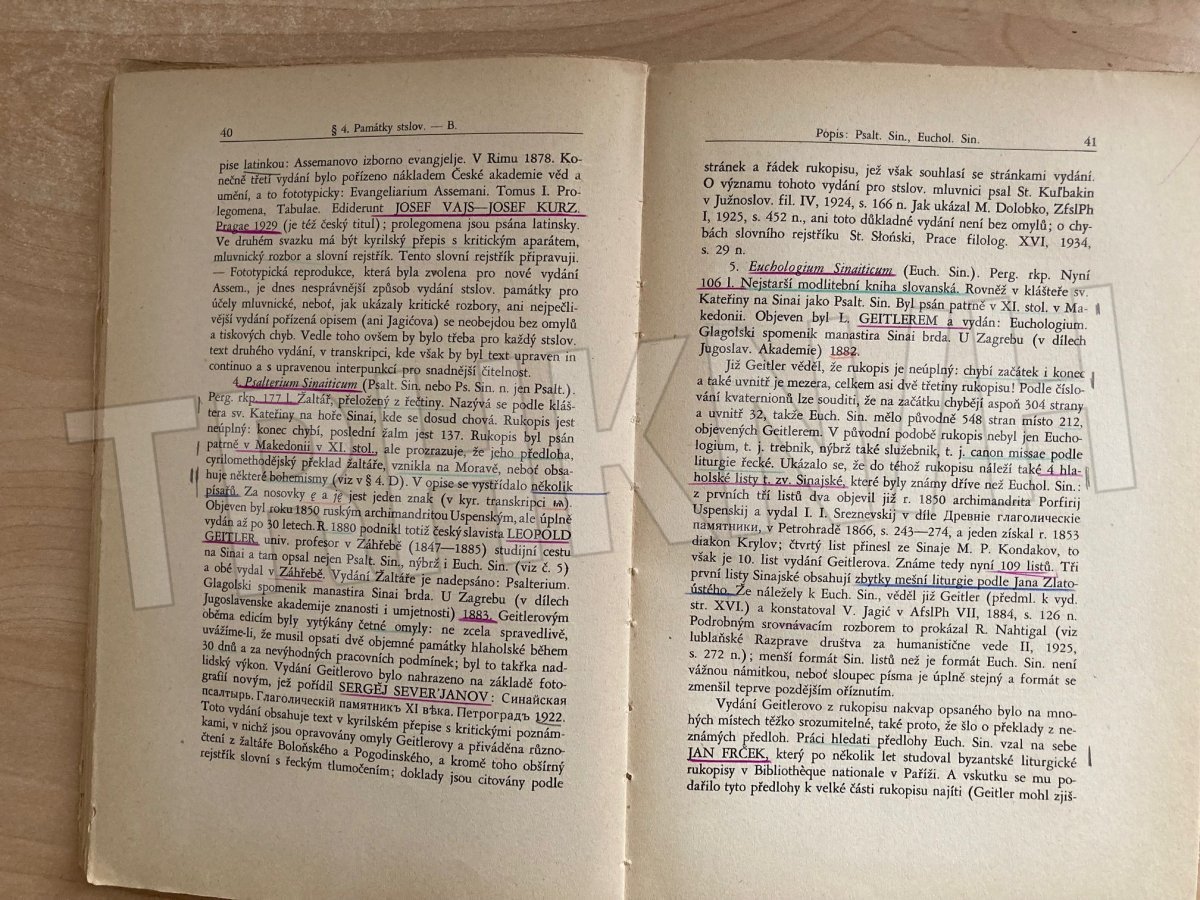 40 § 4. Památky stslov. — B.
pise latinkou: Assemanovo izborno evangjelje. V Rimu 1878. Ko-
nečně třetí vydání bylo pořízeno nákladem České akademie věd a
umění, a to fototypicky: Evangeliarium Assemani. Tomus I. Pro-
legomena, Tabulae. Ediderunt JOSEF VAJS—JOSEF KURZ.
Pragae 1929 (je též český titul); prolegomena jsou psána latinsky.
Ve druhém svazku má být kyrilský přepis s kritickým aparátem,
mluvnický rozbor a slovní rejstřík. Tento slovní rejstřík připravuji.
— Fototypická reprodukce, která byla zvolena pro nové vydání
Assem., je dnes nesprávnější způsob vydání stslov. památky pro
účely mluvnické, neboť, jak ukázaly kritické rozbory, ani nejpečli-
vější vydání pořízená opisem (ani Jagićova) se neobejdou bez omylů
a tiskových chyb. Vedle toho ovšem by bylo třeba pro každý stslov.
text druhého vydání, v transkripci, kde však by byl text upraven in
continuo a s upravenou interpunkcí pro snadnější čitelnost.
4. Psalterium Sinaiticum (Psalt. Sin. nebo Ps. Sin. n. jen Psalt.).
Perg. rkp. 177 l. Žaltář, přeložený z řečtiny. Nazývá se podle kláš-
tera sv. Kateřiny na hoře Sinai, kde se dosud chová. Rukopis jest
neúplný: konec chybí, poslední žalm jest 137. Rukopis byl psán
patrně v Makedonii v XI. stol., ale prozrazuje, že jeho předloha,
cyrilomethodějský překlad žaltáře, vznikla na Moravě, neboť obsa-
huje některé bohemismy (viz v § 4. D). V opise se vystřídalo několik
písařů. Za nosovky ę a ję jest jeden znak (v kyr. transkripci ѩ).
Objeven byl roku 1850 ruským archimandritou Uspenským, ale úplně
vydán až po 30 letech. R. 1880 podnikl totiž český slavista LEOPOLD
GEITLER univ. profesor v Záhřebě (1847—1885) studijní cestu
na Sinai a tam opsal nejen Psalt. Sin., nýbrž i Euch. Sin. (viz č. 5)
a obé vydal v Záhřebě. Vydání Žaltáře je nadepsáno: Psalterium.
Glagolski spomenik manastira Sinai brda. U Zagrebu (v dílech
Jugoslavenske akademije znanosti i umjetnosti) 1883. Geitlerovým
oběma edicím byly vytýkány četné omyly: ne zcela spravedlivě,
uvážíme-li, že musil opsati dvě objemné památky hlaholské během
30 dnů a za nevýhodných pracovních podmínek; byl to takřka nad-
lidský výkon. Vydání Geitlerovo bylo nahrazeno na základě foto-
grafií novým, jež pořídil SERGĚJ SEVER'JANOV: Синайская
псалтырь. Глаголическій памятникъ XI вѣка. Петроградъ 1922.
Toto vydání obsahuje text v kyrilském přepise s kritickými poznám-
kami, v nichž jsou opravovány omyly Geitlerovy a přiváděna různo-
čtení z žaltáře Boloňského a Pogodinského, a kromě toho obšírný
rejstřík slovní s řeckým tlumočením; doklady jsou citovány podle
Popis: Psalt. Sin., Euchol. Sin. 41
stránek a řádek rukopisu, jež však souhlasí se stránkami vydání.
O významu tohoto vydání pro stslov. mluvnici psal St. Kuľbakin
v Južnoslov. fil. IV, 1924, s. 166 n. Jak ukázal M. Dolobko, ZfslPh
I, 1925, s. 452 n., ani toto důkladné vydání není bez omylů; o chy-
bách slovního rejstříku St. Słoński, Prace filolog. XVI, 1934,
s. 29 n.
5. Euchologium Sinaiticum (Euch. Sin.). Perg. rkp. Nyní
106 l. Nejstarší modlitební kniha slovanská. Rovněž v klášteře sv.
Kateřiny na Sinai jako Psalt. Sin. Byl psán patrně v XI. stol. v Ma-
kedonii. Objeven byl L. GEITLEREM a vydán: Euchologium.
Glagolski spomenik manastira Sinai brda. U Zagrebu (v dílech
Jugoslav. Akademie) 1882.
Již Geitler věděl, že rukopis je neúplný: chybí začátek i konec
a také uvnitř je mezera, celkem asi dvě třetiny rukopisu! Podle číslo-
vání kvaternionů lze souditi, že na začátku chybějí aspoň 304 strany
a uvnitř 32, takže Euch. Sin. mělo původně 548 stran místo 212,
objevených Geitlerem. V původní podobě rukopis nebyl jen Eucho-
logium, t. j. trebnik, nýbrž také služebnik, t. j. canon missae podle
liturgie řecké. Ukázalo se, že do téhož rukopisu náleží také 4 hla-
holské listy t. zv. Sinajské, které byly známy dříve než Euchol. Sin.;
z prvních tří listů dva objevil již r. 1850 archimandrita Porfirij
Uspenskij a vydal I. I. Sreznevskij v díle Древніе глаголическіе
памятники, v Petrohradě 1866, s. 243—274, a jeden získal r. 1853
diakon Krylov; čtvrtý list přinesl ze Sinaje M. P. Kondakov, to
však je 10. list vydání Geitlerova. Známe tedy nyní 109 listů. Tři
první listy Sinajské obsahují zbytky mešní liturgie podle Jana Zlato-
ústého. Že náležely k Euch. Sin., věděl již Geitler (předml. k vyd.
str. XVI.) a konstatoval V. Jagić v AfslPh VII, 1884, s. 126 n.
Podrobným srovnávacím rozborem to prokázal R. Nahtigal (viz
lublaňské Razprave društva za humanistične vede II, 1925,
s. 272 n.); menší formát Sin. listů než je formát Euch. Sin. není
vážnou námitkou, neboť sloupec písma je úplně stejný a formát se
zmenšil teprve pozdějším oříznutím.
Vydání Geitlerovo z rukopisu nakvap opsaného bylo na mno-
hých místech těžko srozumitelné, také proto, že šlo o překlady z ne-
známých předloh. Práci hledati předlohy Euch. Sin. vzal na sebe
JAN FRČEK, který po několik let studoval byzantské liturgické
rukopisy v Bibliothèque nationale v Paříži. A vskutku se mu po-
dařilo tyto předlohy k velké části rukopisu najíti (Geitler mohl zjiš-